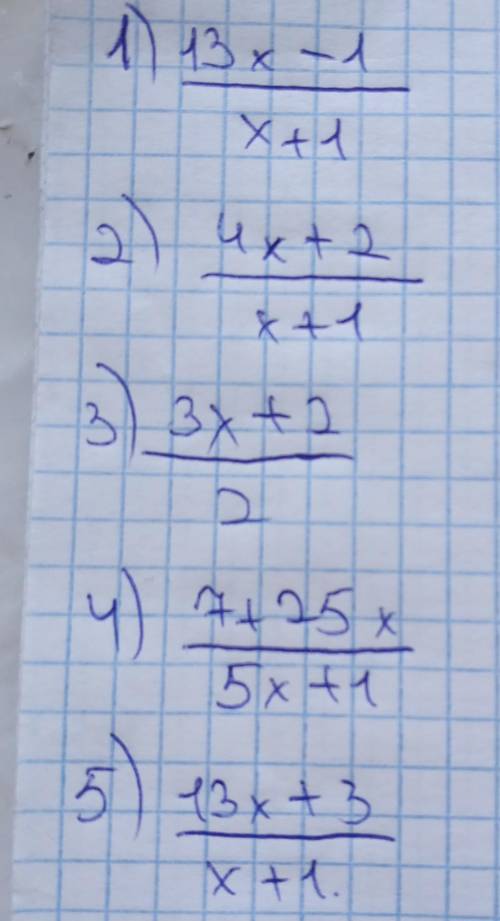 1) 13x - 1
x + 1
2) 4x + 2
x + 1
3) 3x + 2
2
4) 7 + 25x
5x + 1
5) 13x + 3
x + 1.